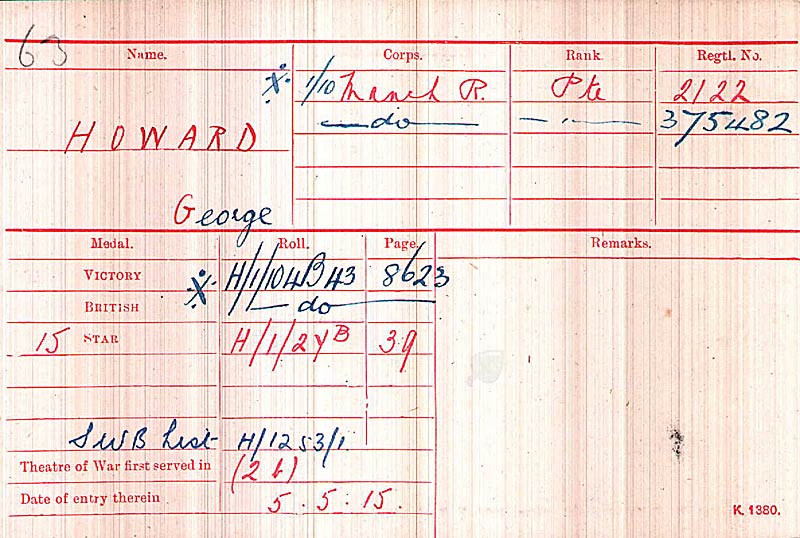 63
Name. Corps. Rank. Regtl. No.
1/10 Manch R. Pte 2122
HOWARD — do — — " — 375482
George
Medal. Roll. Page. Remarks.
VICTORY H/1/104B43 8623
BRITISH — do —
15 STAR H/1/2 39
SWB List H/1253/1
Theatre of War first served in (2b)
Date of entry therein 5.5.15.
K. 1380.